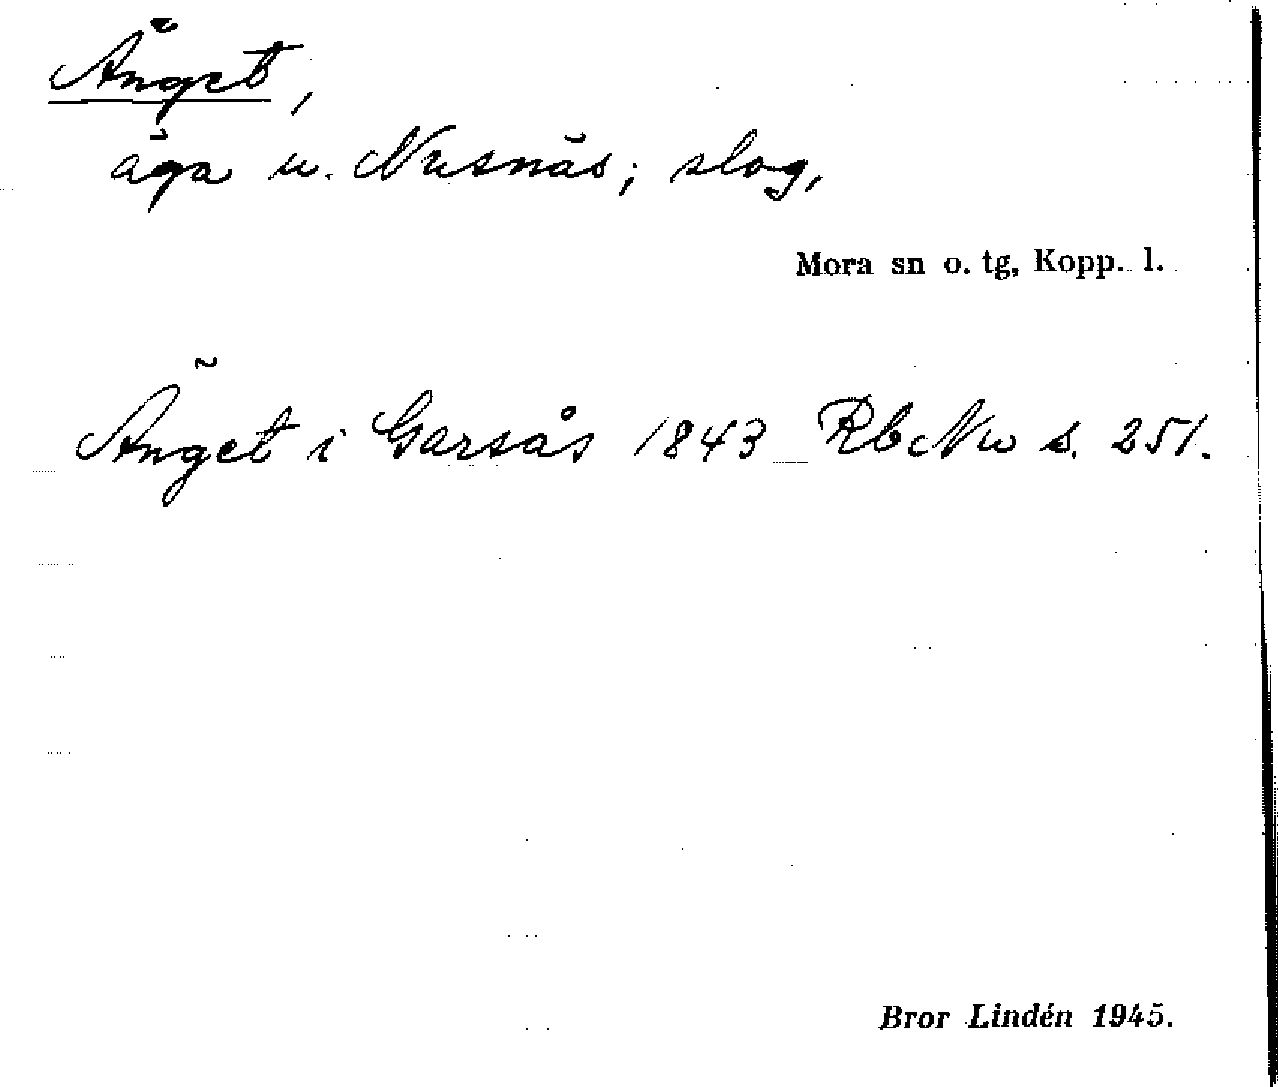 Änget,
äga u. Nusnäs; slog,
Mora sn o. tg, Kopp. l.
Änget i Garsås 1843 RbNu s. 251.
Bror Lindén 1945.